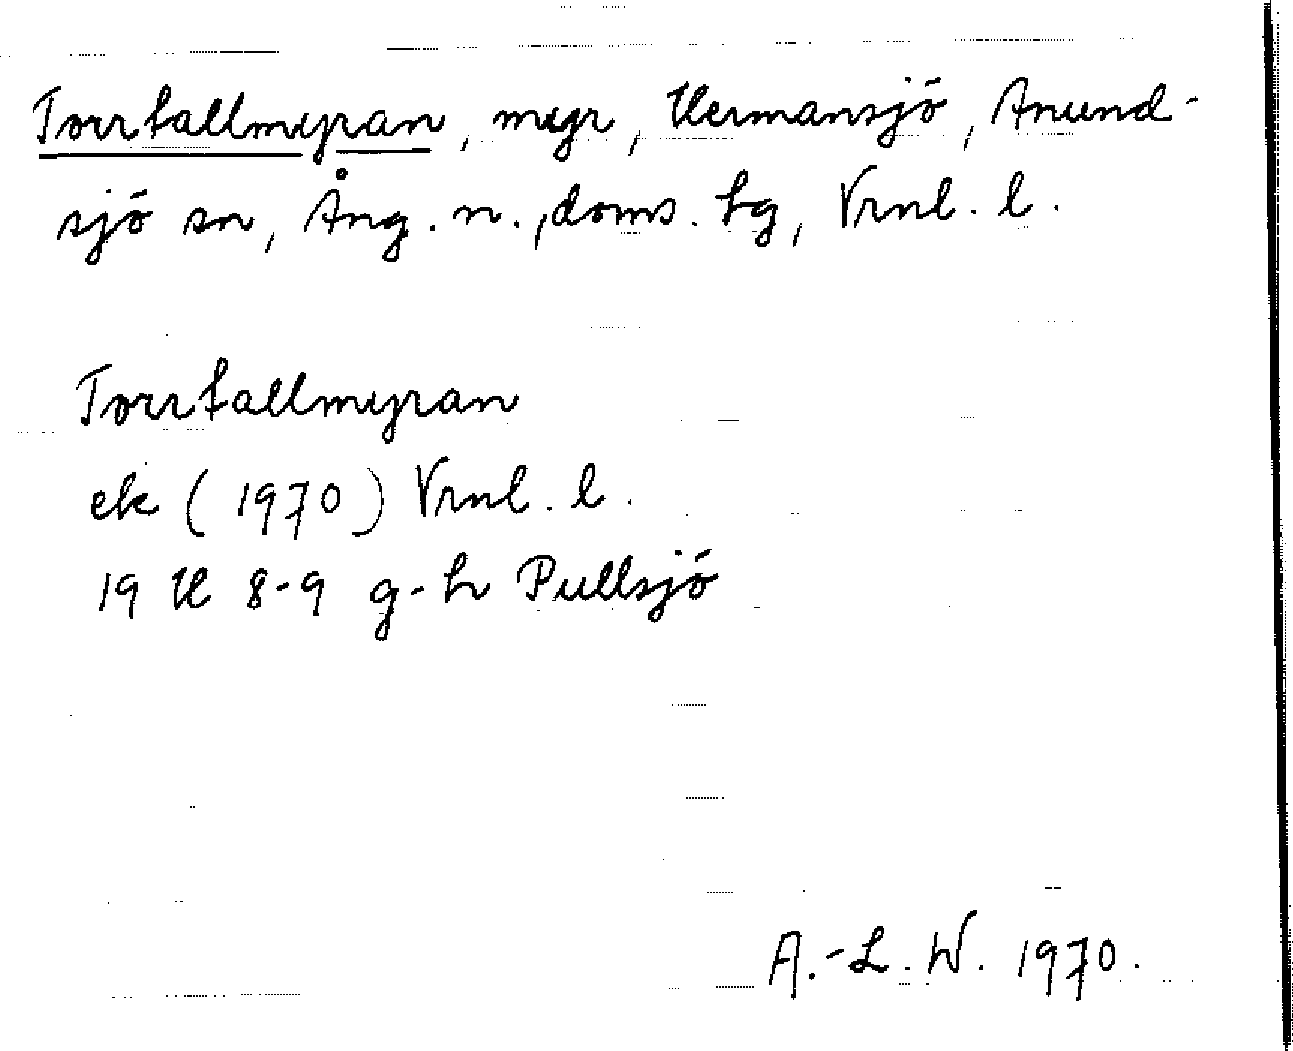 Torrtallmyran, myr, Hermansjö, Anund-
sjö sn, Ång. n., doms. tg, Vrnl. l.
Torrtallmyran
ek (1970) Vrnl. l.
19 H 8-9 g-h Pullsjö
A.-L. W. 1970.